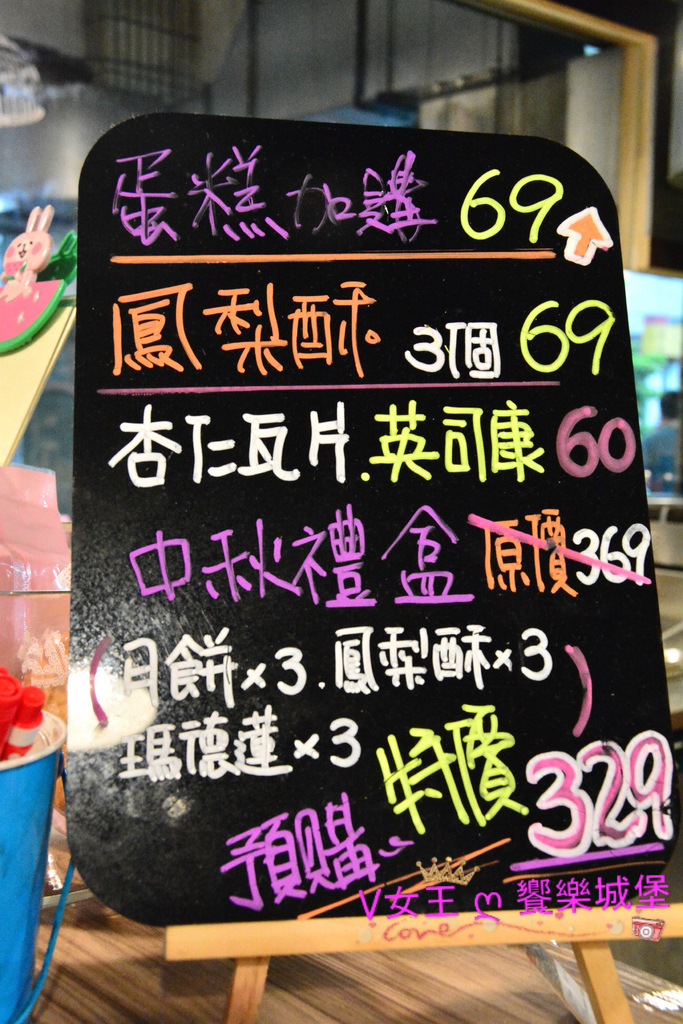 蛋糕加購 69
鳳梨酥 3個 69
杏仁瓦片.英司康 60
中秋禮盒 原價369
(月餅×3.鳳梨酥×3
瑪德蓮×3)
特價 329
預購
V女王 ღ 饗樂城堡
Core